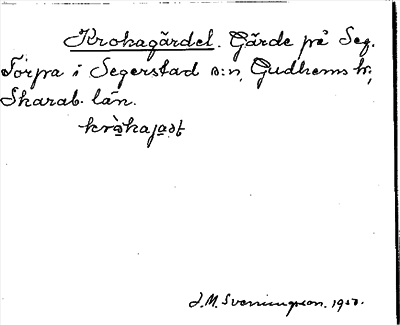 Krokagärdel. Gärde på Seg.
Torpa i Segerstad s:n, Gudhems hr,
Skarab. län.
J. M. Svenningsson. 1950.